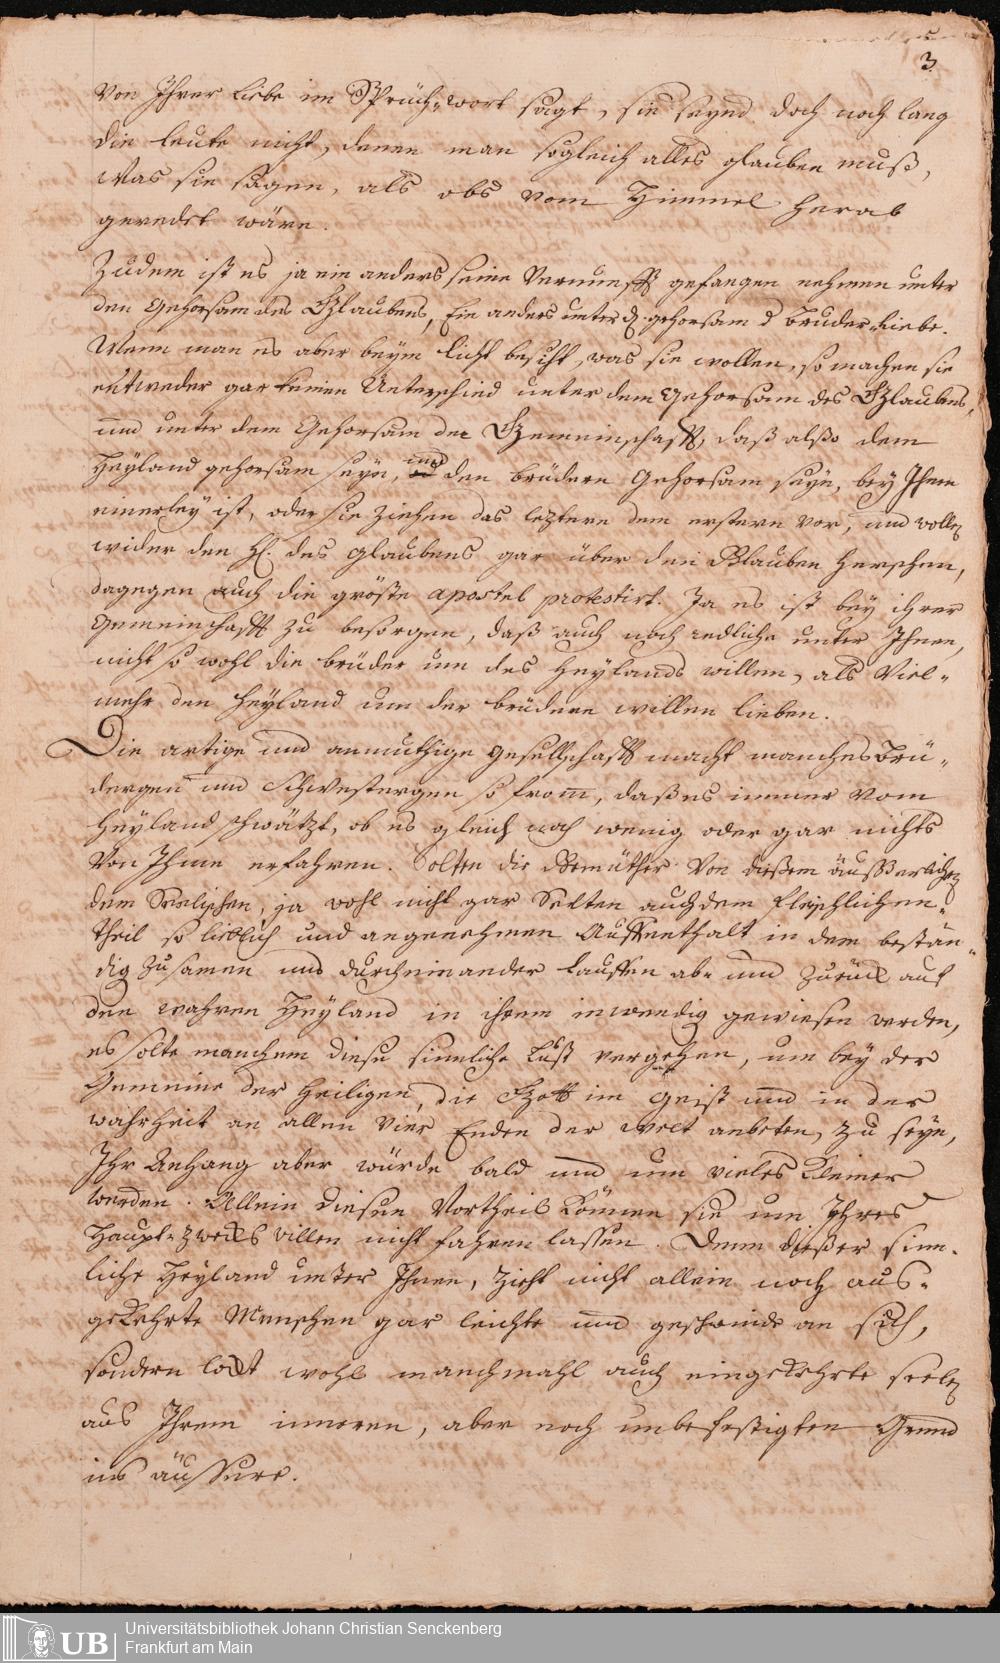 3
von Ihrer Liebe im Sprüch-wort sagt, sie seynd doch noch lang
die leute nicht, denen man sogleich alles glauben muß,
Was sie sagen, als obs vom Himmel herab
geredet wäre.
Zudem ist es ja ein anders seine Vernunfft gefangen nehmen unter
den Gehorsam des Glaubens, Ein anders unter d. gehorsam d Bruder-Liebe.
Wenn man es aber beym licht besiht, was sie wollen, so machen sie
entweder gar keinen Unterschied unter dem Gehorsam des Glaubens,
und unter dem Gehorsam der Gemeinschafft, daß alßo dem
Heyland gehorsam seyn, und den brüdern Gehorsam seyn, bey Ihnen
einerley ist, oder sie ziehen das leztere dem erstern vor, und wollen
wider den H. des glaubens gar über den Glauben herschen,
dagegen auch die gröste apostel protestirt. Ja es ist bey ihrer
Gemeinschafft zu besorgen, daß auch noch redliche unter Ihnen,
nicht so wohl die brüder um des Heylands willen, als Viel-
mehr den Heyland um der brüdern willen lieben.
Die artige und anmuthige gesellschafft macht manches Brü-
dergen und Schwestergen so fromm, daß es immer vom
Heyland schwätzt, ob es gleich noch wenig oder gar nichts
von Ihme erfahren. Solten die Gemüther von dießem äusserlichen
dem Seelischen, ja wohl nicht gar Selten auch dem fleischlichen
theil so lieblich und angenehmen Auffenthalt in dem bestän-
dig zusamen und durcheinander lauffen ab- und zurück auf
den wahren Heyland in ihrem inwendig gewiesen werden,
es solte manchem diese sinnliche Lust vergehen, um bey der
Gemeine der Heiligen, die Gott im geist und in der
wahrheit an allen Vier Enden der welt anbeten, zu seyn,
Ihr Anhang aber würde bald und um vieles kleiner
werden. Allein diesen Vortheil können sie um Ihres
Haupt-zwecks willen nicht fahren lassen. Denn dießer sinn-
liche Heyland unter Ihnen, zieht nicht allein noch aus-
gekehrte Menschen gar leichte und geschwinde an sich,
sondern lockt wohl manchmahl auch eingekehrte seelen
aus Ihrem inneren, aber noch unbefestigten Grund
ins äussere.
Universitätsbibliothek Johann Christian Senckenberg
Frankfurt am Main
UB